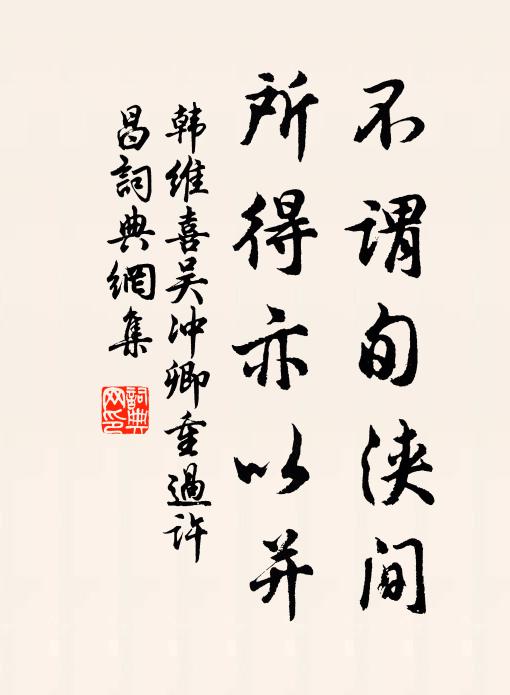 不谓旬浃间
所得亦以并
韩维喜吴冲卿重過许
昌詞典網集
詞典网印